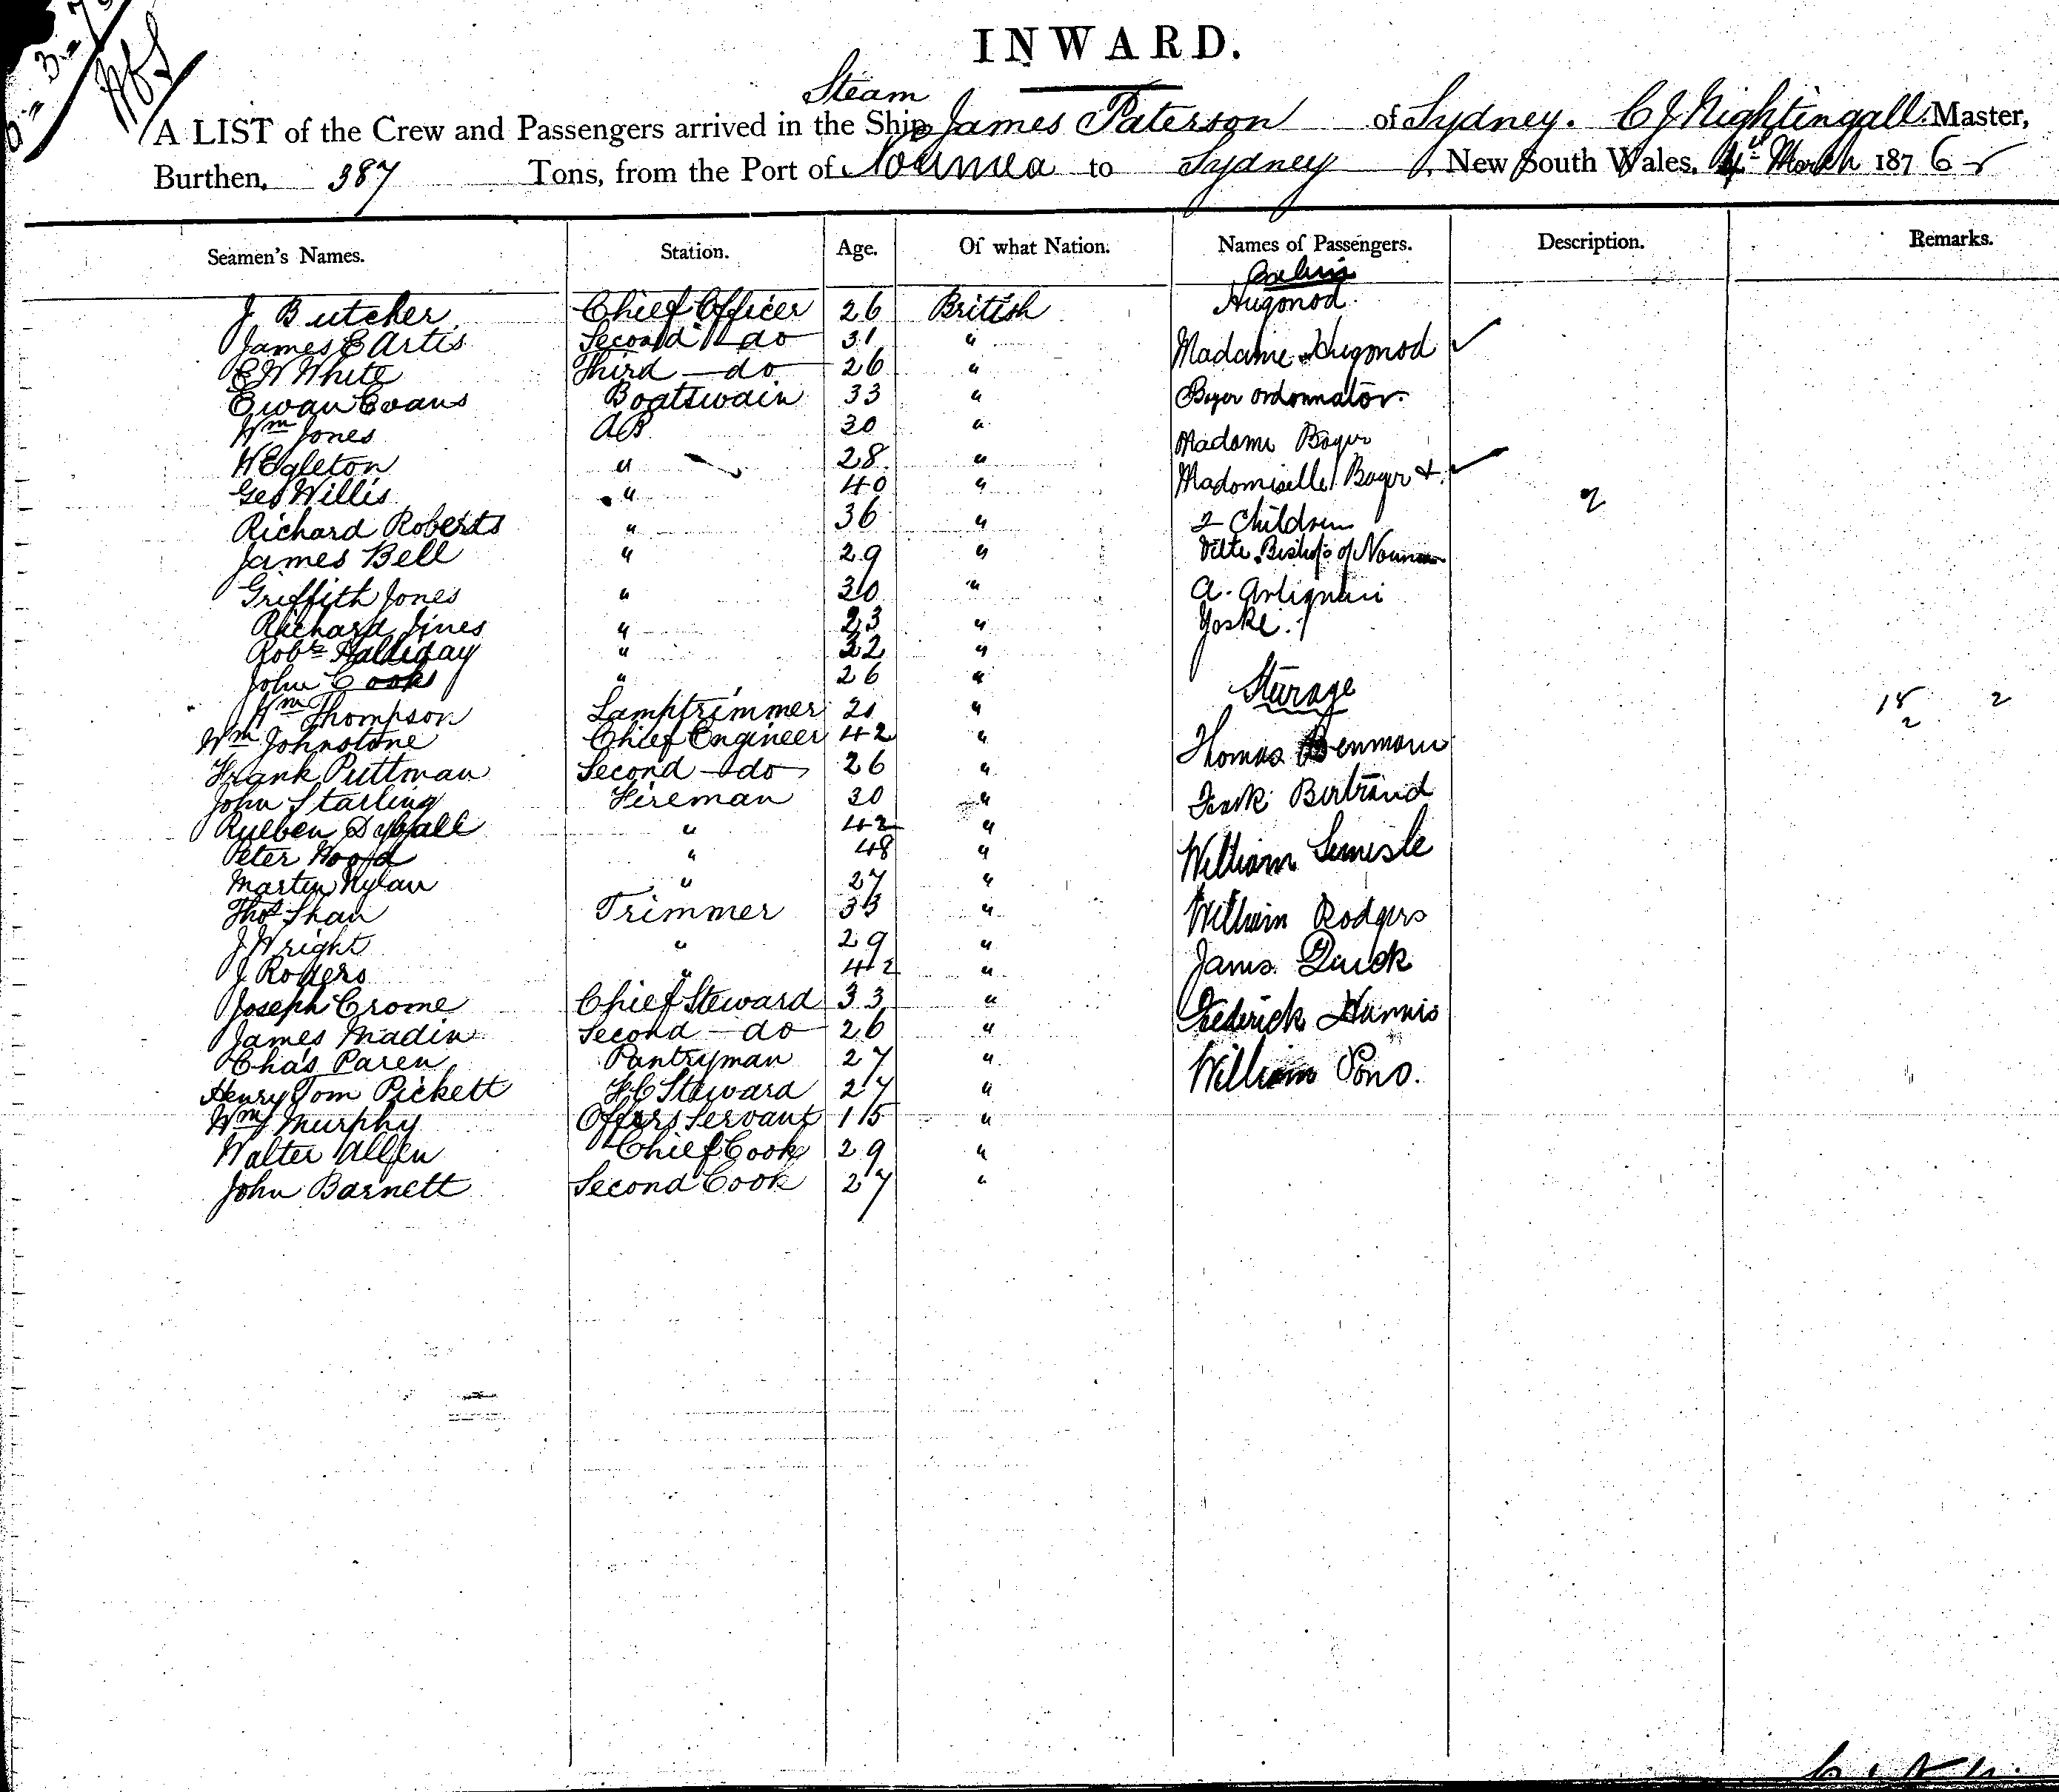 INWARD.
Steam
A LIST of the Crew and Passengers arrived in the Ship James Paterson of Sydney. C J Nightingall Master,
Burthen, 387 Tons, from the Port of Noumea to Sydney, New South Wales, 4th March 1876
Seamen's Names. Station. Age. Of what Nation. Names of Passengers. Description. Remarks.
J Butcher Chief Officer 26 British Hugonod
James E Artis Second do 31 " Madame Hugonod ✓
E W White Third do 26 "
Ewan Evans Boatswain 33 " Boyer ordonnator
Wm Jones AB 30 " Madame Boyer
W Egleton " 28 " Madomiselle Boyer & ✓
Geo Willis " 40 "
Richard Roberts " 36 " 2 Children 2
James Bell " 29 " Bishop of Noumea
Griffith Jones " 30 " A.
Richard Jines " 23 " Joske
Robt Halliday " 22 "
John Cook " 26 " Sturage
Wm Thompson Lamptrimmer 21 " 18 2
2
Wm Johnstone Chief Engineer 42 " Thomas
Frank Puttman Second do 26 "
John Starling Fireman 30 " Frank Bertrand
Rueben Dyball " 42 "
Peter Wood " 48 " William
Martin Nylan " 27 "
Thos Shan Trimmer 33 " William Rodgers
J Wright " 29 "
J Rogers " 42 " James Quick
Joseph Crome Chief Steward 33 " Frederick Hannis
James Madin Second do 26 "
Chas Paren Pantryman 27 " William Pons.
Henry Tom Pickett F C Steward 27 "
Wm Murphy Offers Servant 15 "
Walter Allen Chief Cook 29 "
John Barnett Second Cook 27 "